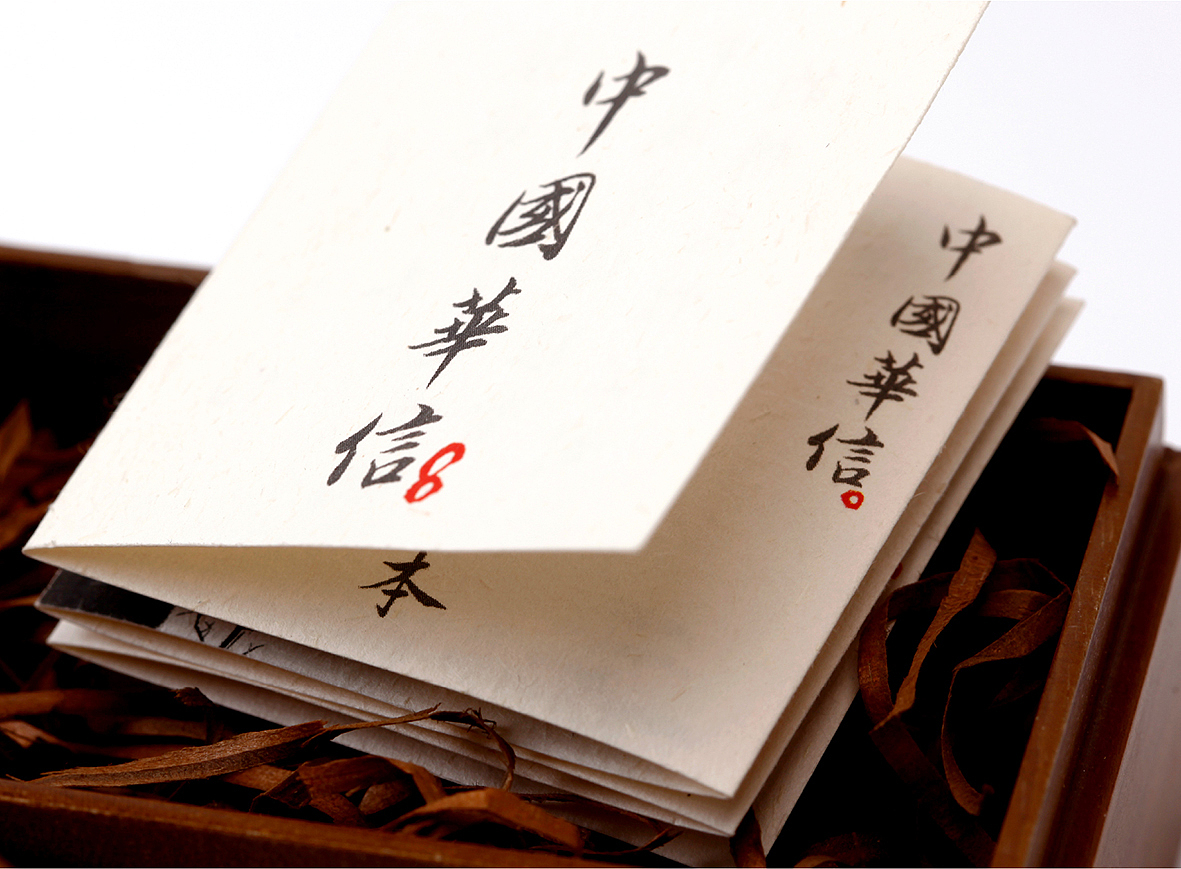 中國華信8
中國華信。
本